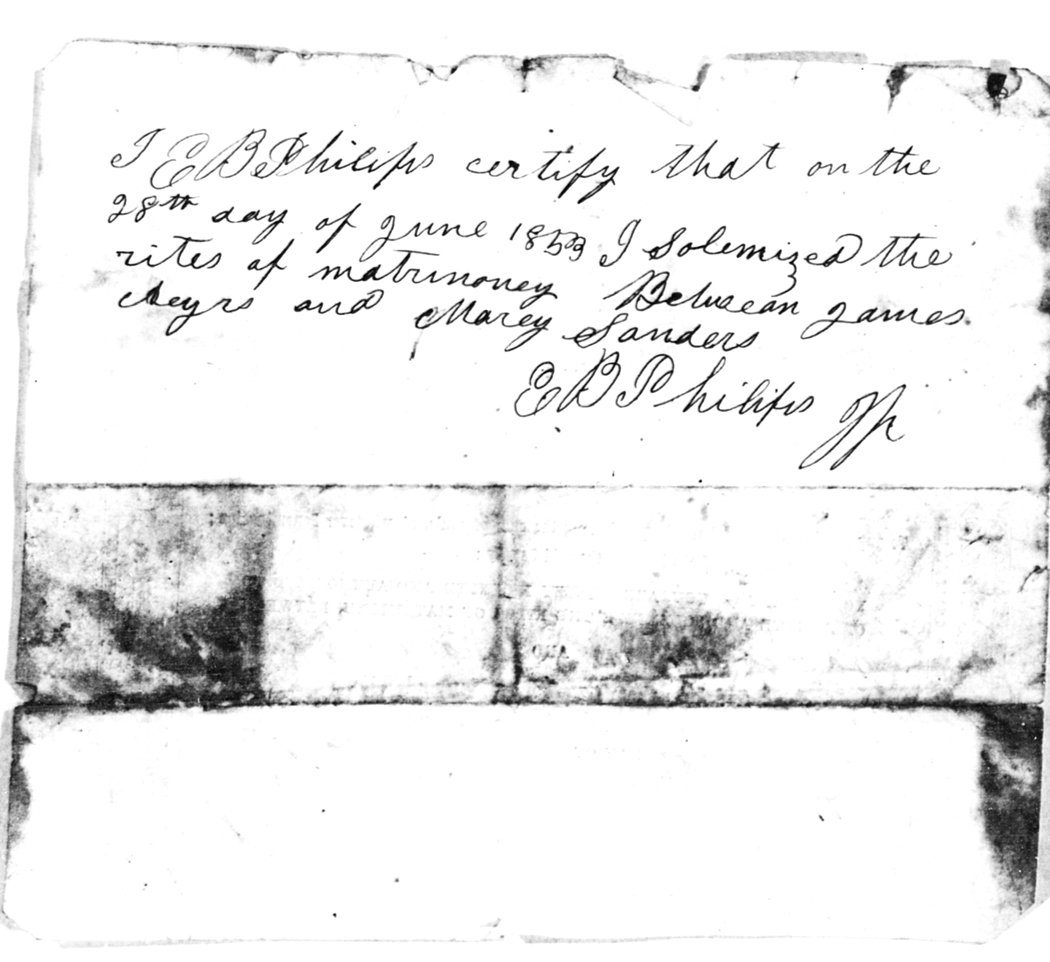 I E B Philips certify that on the
28th day of June 1853 I Solemized the
rites of matrimoney Betwean James
Aeyrs and Marey Sanders
E B Philips JP